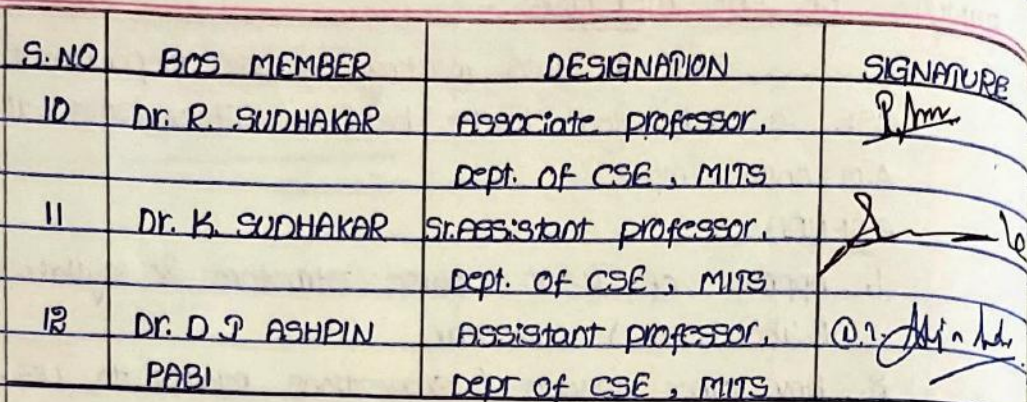 S.NO BOS MEMBER DESIGNATION SIGNATURE
10 Dr. R. SUDHAKAR Associate professor,
Dept. OF CSE, MITS
11 Dr. K. SUDHAKAR Sr.Assistant professor,
Dept. OF CSE, MITS
12 Dr. D J ASHPIN Assistant professor,
PABI Dept OF CSE, MITS